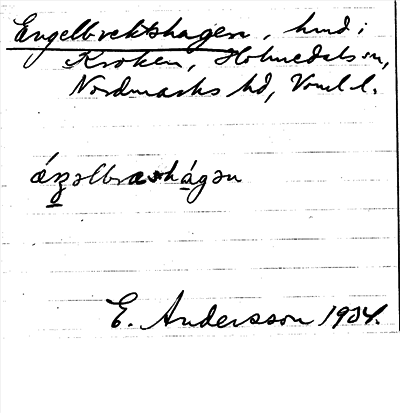 Engelbrektshagen, hmd i
Kroken, Holmedals sn,
Nordmarks hd, Vrml l.
ág̱əlbrashágən
E. Andersson 1934.